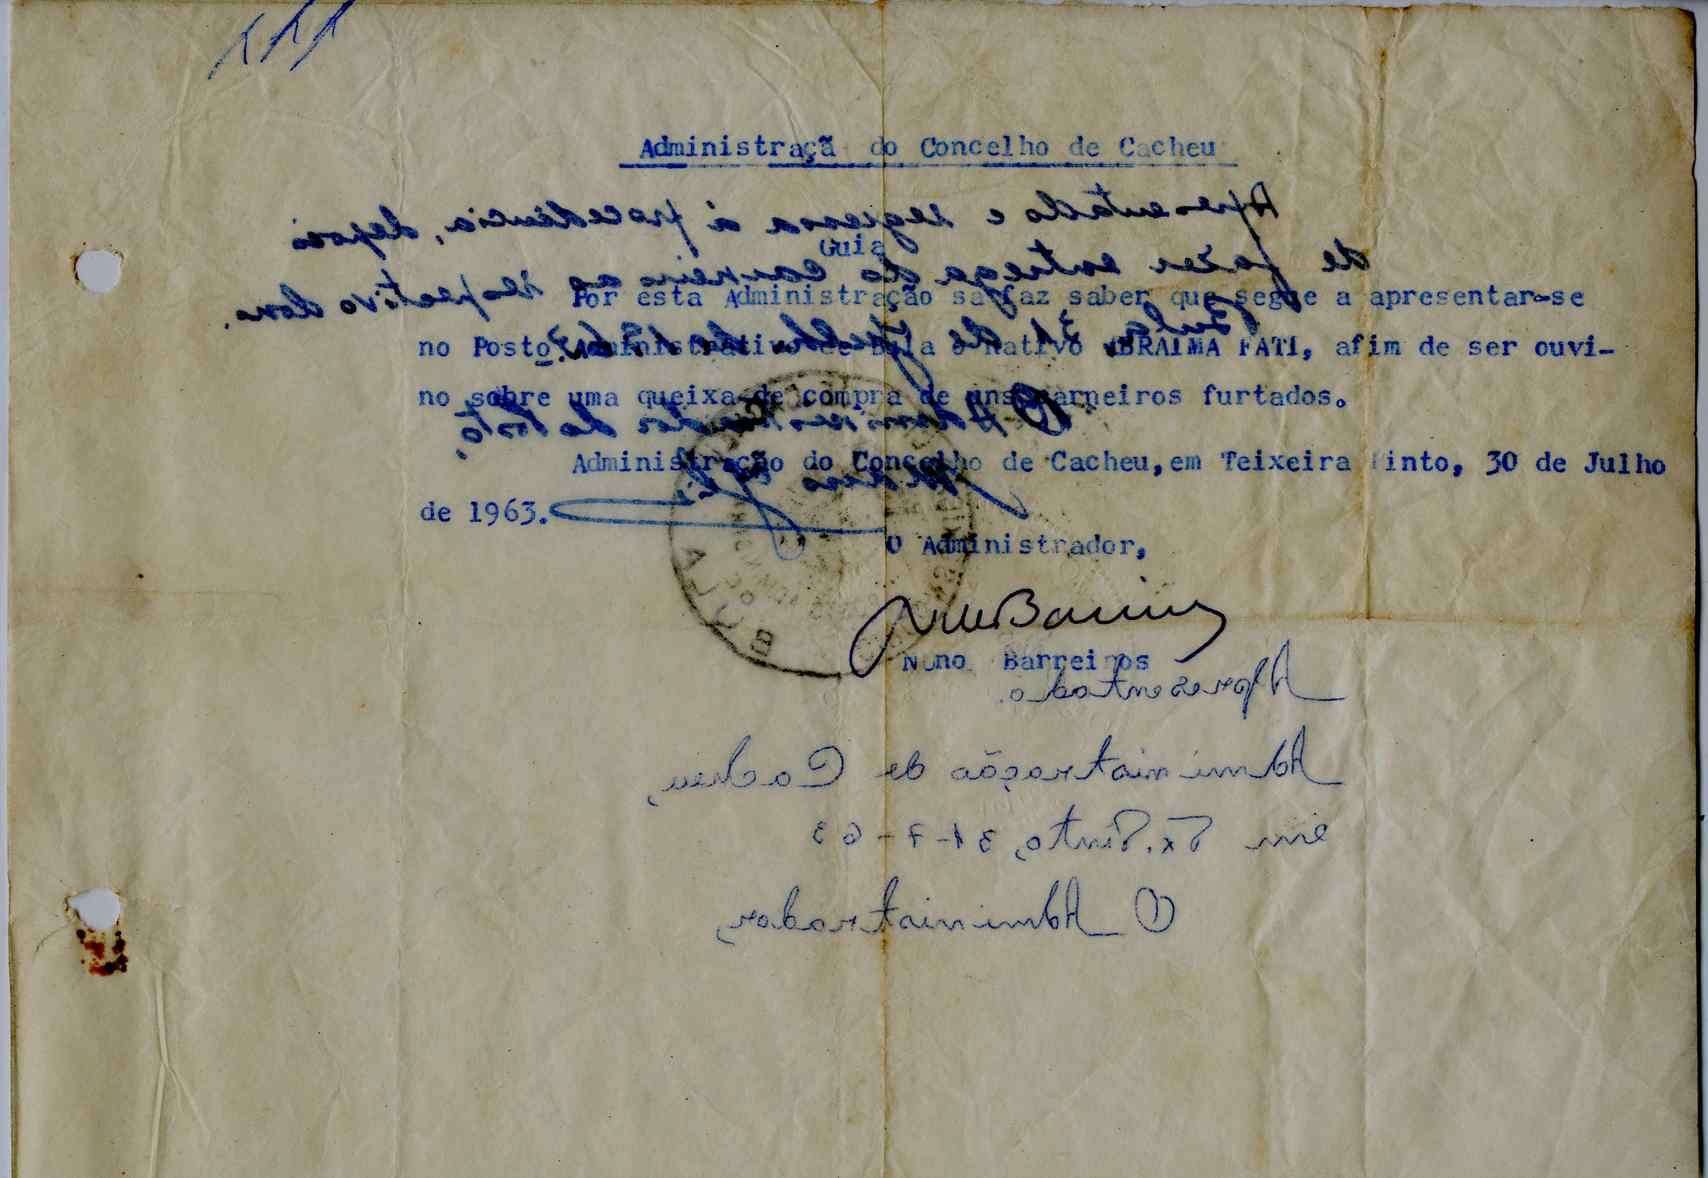 Administraçã do Concelho de Cacheu
Apresentado e regressa à procedência, depois
Guia
de fazer entrega do carneiro ao respectivo dono.
Por esta Administração sa faz saber que segue a apresentar-se
Bula, 31 de Julho de 1963.
no Posto Administrativo de Bula o nativo IBRAIMA FATI, afim de ser ouvi-
no sobre uma queixa de compra de uns carneiros furtados.
O Administrador do Posto,
Administração do Concelho de Cacheu, em Teixeira Pinto, 30 de Julho
de 1963.
O Administrador,
BULA
Nuno Barreiros
Apresentado.
Administração de Cacheu,
em Tx. Pinto, 31-7-63
O Administrador,